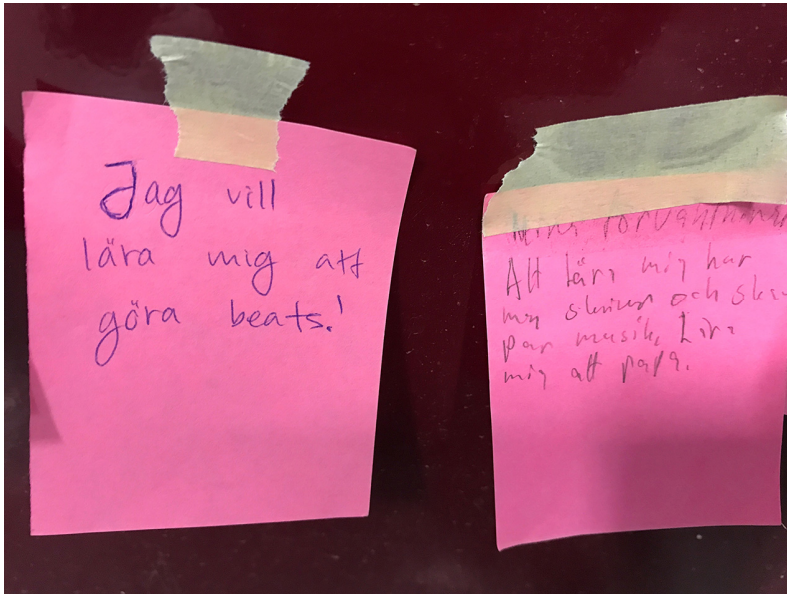 Jag vill
lära mig att
göra beats!
Mina förväntninar
Att lära mig hur
man skriver och ska
par musik. Lära
mig att rapa.